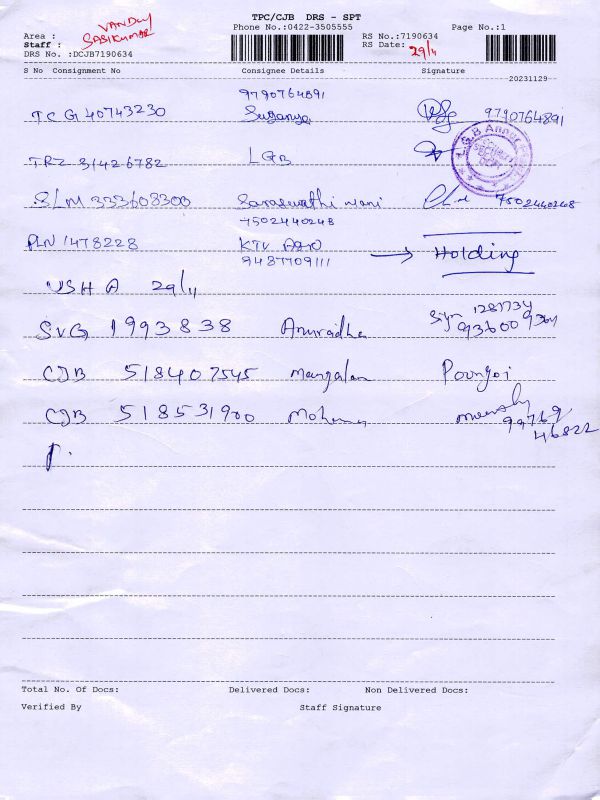 TPC/CJB DRS - SPT
Area : VANDU Phone No.:0422-3505555 RS No.:7190634 Page No.:1
Staff : SASIKUMAR RS Date: 29/11
DRS No. :DCJB7190634
S No Consignment No Consignee Details Signature
20231129
9790764891
TCG 40743230 Suganya 9790764891
TRZ 31426782 LGB L.G.B
SLM 333608300 Saraswathi mani 7502440248
7502440248
PLN 1478228 KTV Agro → Holding
9487709111
USHA 29/11
SVG 1993838 Anuradha
CJB 518407545 Mangalam Poongoi
CJB 518531900 Mohana 99769
46822
Total No. Of Docs: Delivered Docs: Non Delivered Docs:
Verified By Staff Signature